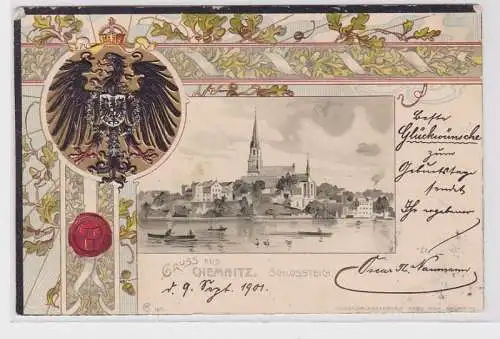 GRUSS AUS
CHEMNITZ. SCHLOSSTEICH
d. 9. Sept. 1901.
Beste
Glückwünsche
zum
Geburtstag
sendet
Ihr ergebener
Oscar Naumann